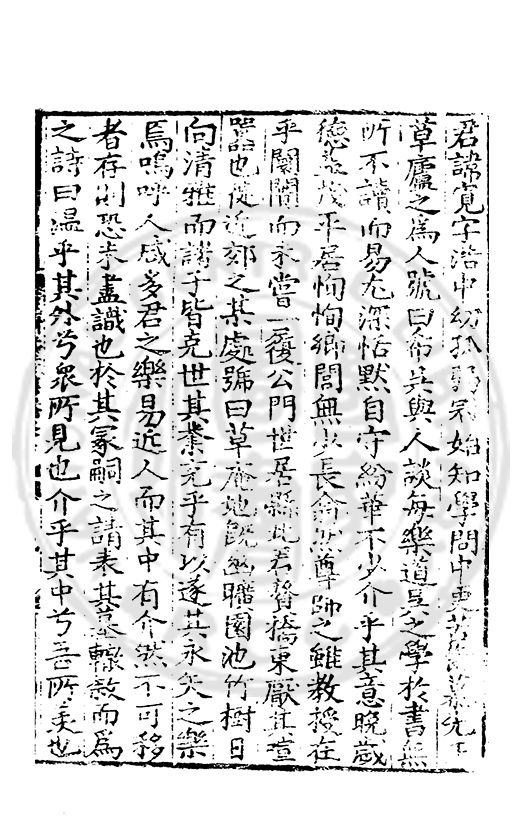 君諱寛字浩中幼孤弱冠始知學問中更慕先正
草廬之為人號曰希吳與人談每樂道吳之學於書無
所不讀而易尤深恬默自守紛華不少介乎其意晚歲
徳益茂平居恂恂鄉閭無少長僉然尊師之雖教授在
乎闤闠而未嘗一履公門世居縣北君贅橋東厭其喧
囂也徙近郊之某處號曰草庵地既幽曠園池竹樹日
向清雅而諸子皆克世其業充乎有以遂其永矢之樂
焉嗚呼人咸多君之樂易近人而其中有介然不可移
者存則恐未盡識也於其冢嗣之請表其墓輙敘而為
之詩曰温乎其外兮衆所見也介乎其中兮吾所羙也